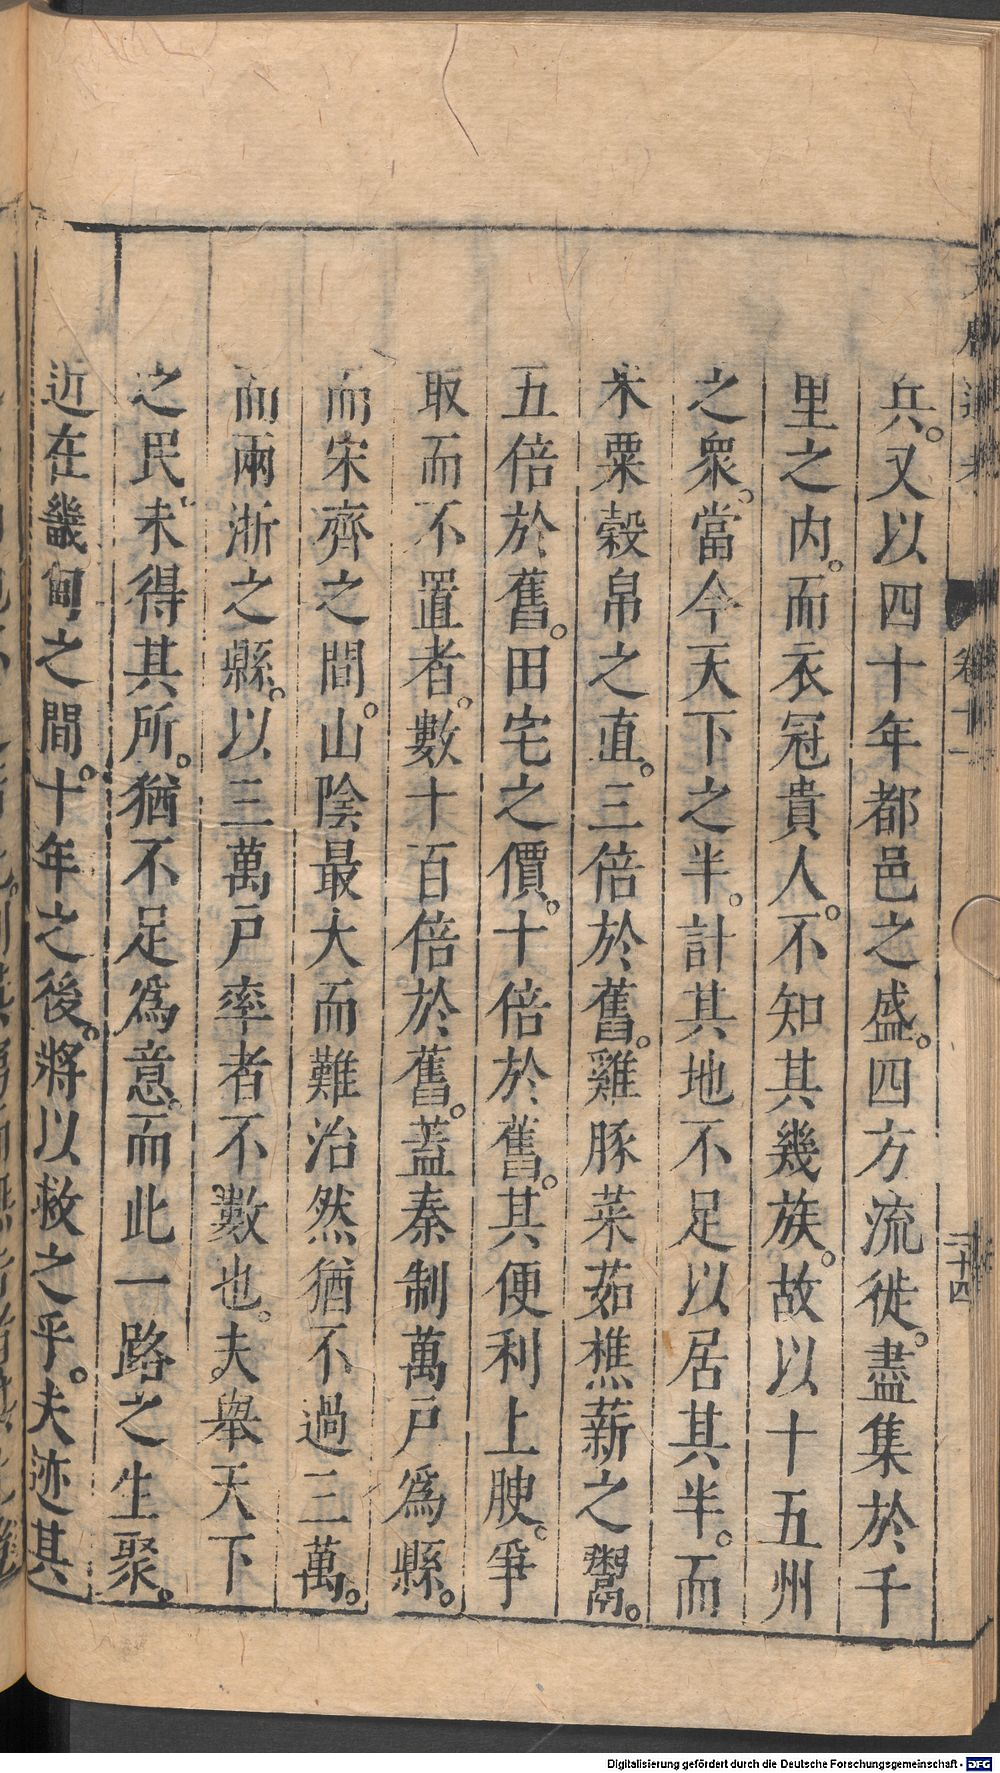 兵。又以四十年都邑之盛。四方流徙。盡集於千
里之内。而衣冠貴人。不知其幾族。故以十五州
之衆。當今天下之半。計其地不足以居其半。而
米粟榖帛之直。三倍於舊。雞豚菜茹樵薪之鬻。
五倍於舊。田宅之價。十倍於舊。其便利上腴。爭
取而不置者。數十百倍於舊。蓋秦制萬戸爲縣。
而宋齊之間。山陰最大而難治然猶不過三萬。
而兩浙之縣。以三萬戸率者不數也。夫舉天下
之民。未得其所。猶不足爲意。而此一路之生聚。
近在畿甸之間。十年之後。將以救之乎。夫迹其
卷十一
三十四
Digitalisierung gefördert durch die Deutsche Forschungsgemeinschaft - DFG